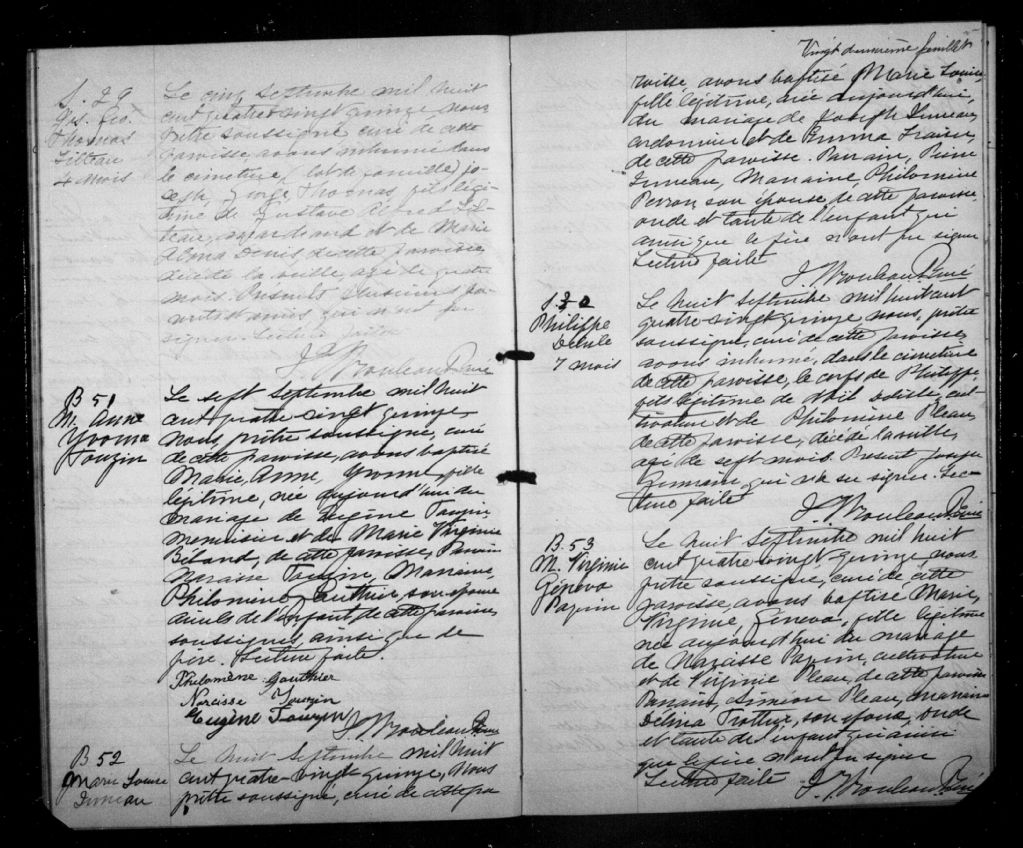 S. 29
Jos. Geo.
Thomas
Filteau
4 mois
Le cinq Septembre mil huit
cent quatre-vingt quinze, nous
prêtre soussigné curé de cette
paroisse, avons inhumé dans
le cimetière, (lot de famille) jo-
seph, George, Thomas, fils légi-
time de Gustave Alfred Fil-
teau, marchand et de Marie
Denis de cette paroisse,
décédé la veille, agé de quatre
mois. Présents plusieurs pa-
rents et amis qui n'ont pu
signer. Lecture faite
J. Rouleau Ptre curé
B 51
M. Anne
Yvonne
Touzin
Le sept Septembre mil huit
cent quatre-vingt quinze,
nous, prêtre soussigné, curé
de cette paroisse, avons baptisé
Marie, Anne, Yvonne, fille
légitime, née aujourd'hui du
mariage de Eugène Touzin,
menuisier et de Marie Virginie
Béland, de cette paroisse. Parrain
Narcisse Touzin, Marraine,
Philomène Gauthier, son épouse
aieuls de l'enfant de cette paroisse
soussignés, ainsi que le
père. Lecture faite.
Philomène Gauthier
Narcisse Touzin
Eugène Touzin
J. Rouleau Ptre
B 52
Marie Louise
Juneau
Le huit Septembre mil huit
cent quatre-vingt quinze, Nous
prêtre soussigné, curé de cette pa
Vingt deuxième feuillet
roisse avons baptisé Marie Louise
fille légitime, née aujourd'hui,
du mariage de Joseph Juneau,
cordonnier et de Emma
de cette paroisse. Parrain, Pierre
Juneau, Marraine, Philomène
Perron son épouse, de cette paroisse
oncle et tante de l'enfant qui
ainsi que le père n'ont pu signer
Lecture faite
J. Rouleau Ptre curé
S. 30
Philippe
Delisle
7 mois
Le huit Septembre mil huit cent
quatre-vingt quinze nous, prêtre
soussigné, curé de cette paroisse,
avons inhumé, dans le cimetière
de cette paroisse, le corps de Philippe
fils légitime de Delisle, cul-
tivateur et de Philomène Pleau,
de cette paroisse, décédé la veille,
agé de sept mois. Présent Joseph
Germain, qui n'a su signer. Lec-
ture faite
J. Rouleau Ptre curé
B. 53
M. Virginie
Géneva
Papin
Le huit Septembre mil huit
cent quatre-vingt quinze, nous
prêtre soussigné, curé de cette
paroisse, avons baptisé Marie,
Virginie, Géneva, fille légitime
née aujourd'hui du mariage
de Narcisse Papin, cultivateur
et de Virginie Pleau, de cette paroisse
Parrain, Siméon Pleau, marraine
Délina Trottier, son épouse, oncle
et tante de l'enfant qui ainsi
que le père n'ont pu signer
Lecture faite
J. Rouleau Ptre curé